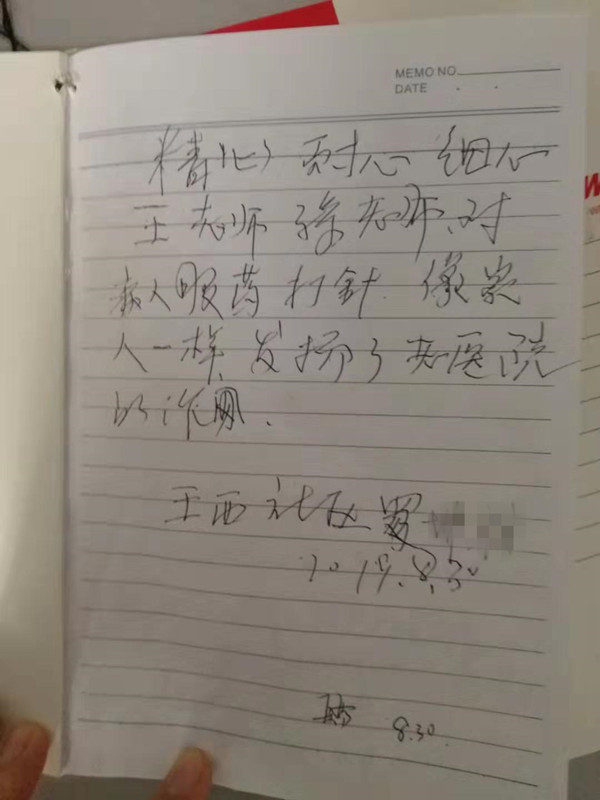 MEMO NO
DATE . .
精心 耐心 细心
王老师 徐老师、对
病人服药 打针. 像家
人一样, 发扬了老医院
的作用.
王西社区 罗
2019.8.30
8.30.